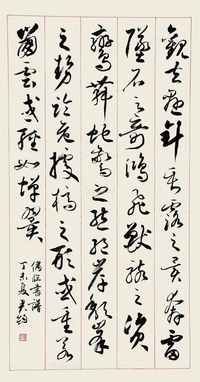 觀夫懸針垂露之異奔雷
墜石之奇鴻飛獸駭之資
鸞舞蛇驚之態絕岸頹峯
之勢臨危據槁之形或重若
崩雲或輕如蟬翼
偶臨書譜
丁未夏